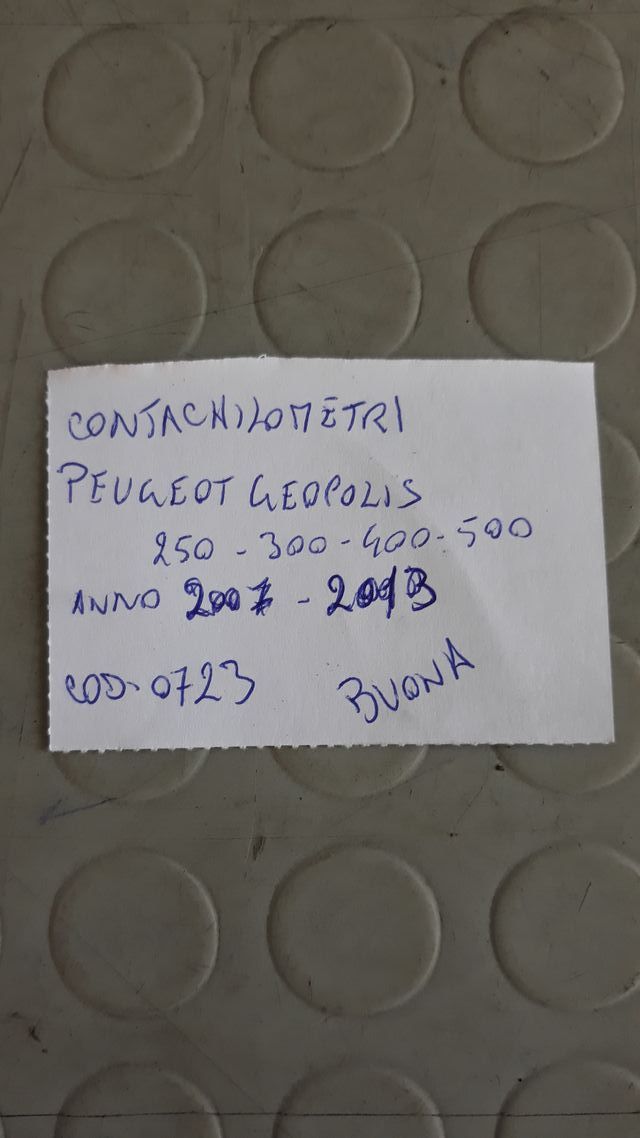 CONTACHILOMETRI
PEUGEOT GEOPOLIS
250 - 300 - 400 - 500
ANNO 2007 - 2013
COD. 0723 BUONA